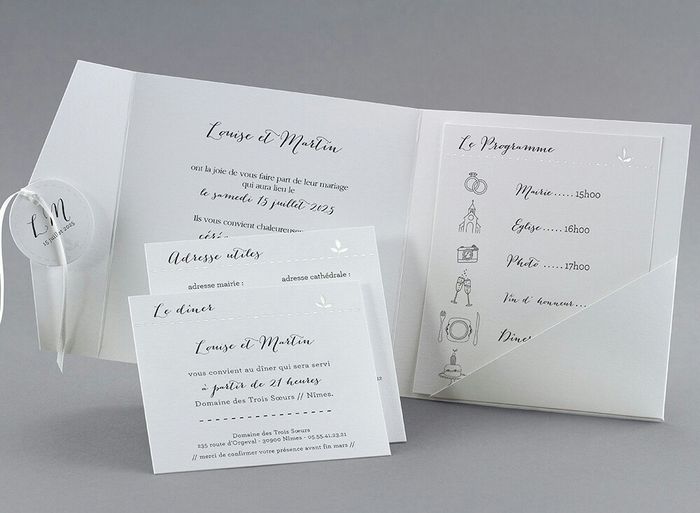 Louise et Martin
ont la joie de vous faire part de leur mariage
qui aura lieu le
le samedi 15 juillet 2025
Ils vous convient
L M
15 juillet 2025
Le Programme
Mairie.....15h00
Eglise.....16h00
Photo.....17h00
Vin d'honneur...
Adresse utiles
adresse mairie :
adresse cathédrale :
Le dîner
Louise et Martin
vous convient au dîner qui sera servi
à partir de 21 heures
Domaine des Trois Sœurs // Nîmes.
Domaine des Trois Sœurs
235 route d'Orgeval - 30900 Nîmes - 05.55.41.23.21
// merci de confirmer votre présence avant fin mars //